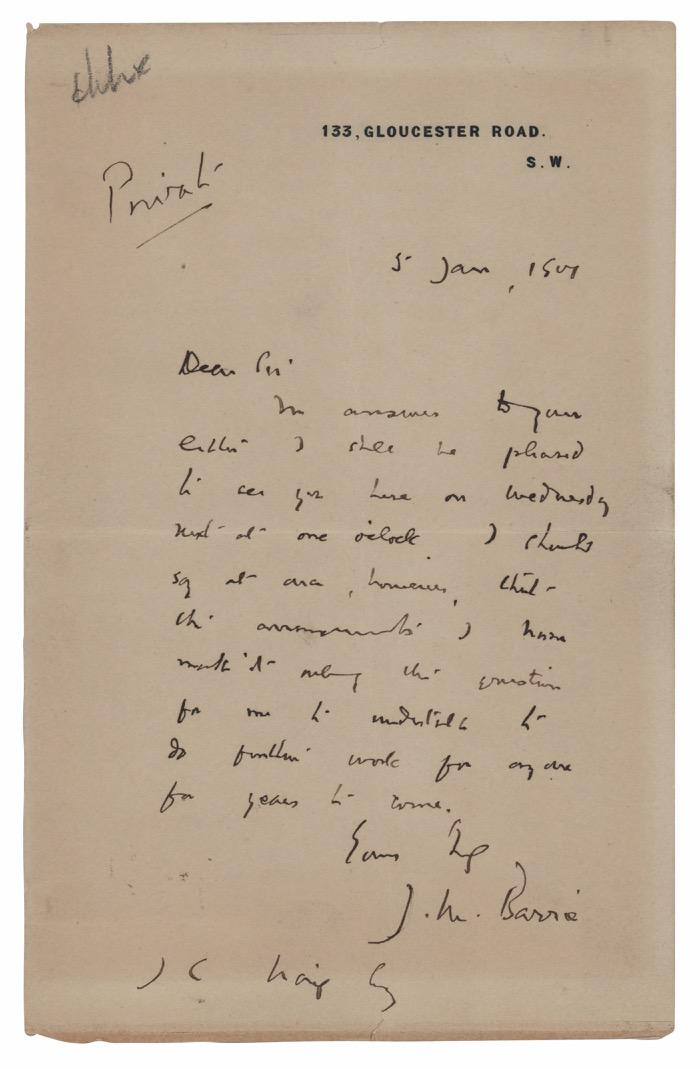 133, GLOUCESTER ROAD.
S.W.
Private
5 Jan, 1901
Dear Sir
In answer to your
letter I shall be pleased
to see you here on Wednesday
next at one o'clock. I should
say at once, however, that
the arrangements I have
make it out of the question
for me to undertake to
do further work for anyone
for years to come.
Yours truly
J. M. Barrie
J C Haig Esq